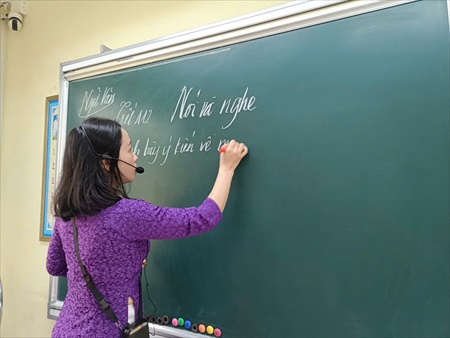 Ngữ Văn
Nói và nghe
bày ý kiến về